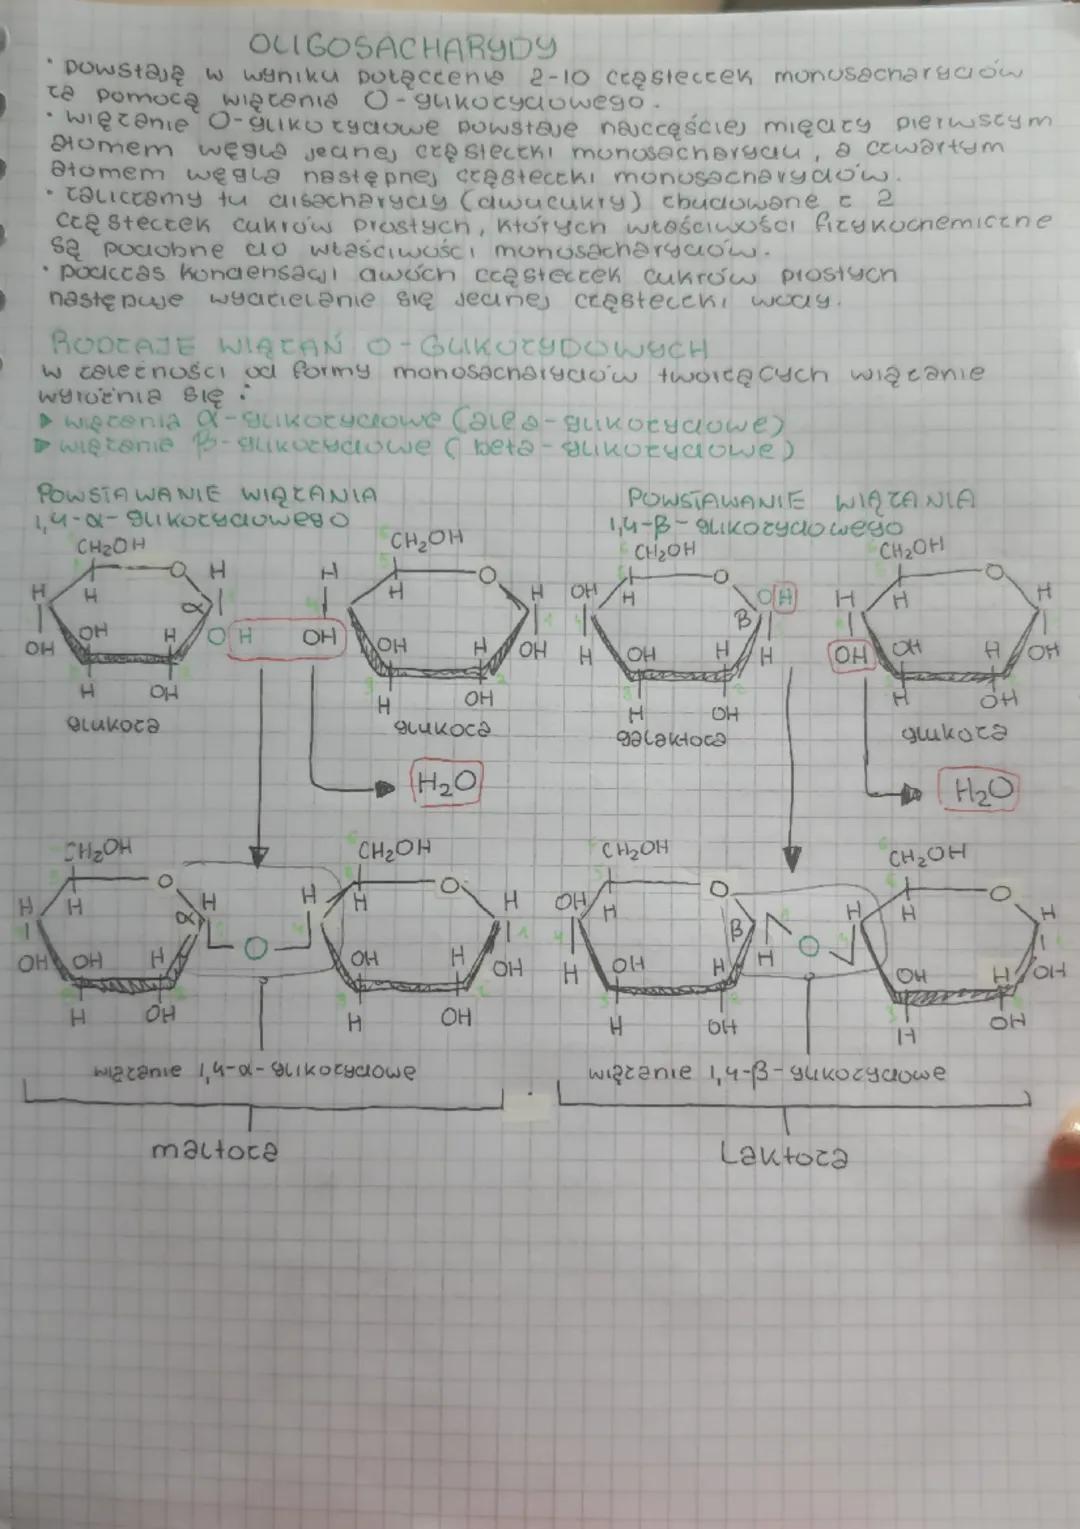 OLIGOSACHARYDY
• powstają w wyniku połączenia 2-10 cząsteczek monosacharydów
za pomocą wiązania O-glikozydowego.
• wiązanie O-glikozydowe powstaje najczęściej między pierwszym
atomem węgla jednej cząsteczki monosacharydu, a czwartym
atomem węgla następnej cząsteczki monosacharydów.
• zaliczamy tu disacharydy (dwucukry) zbudowane z 2
cząsteczek cukrów prostych, których właściwości fizykochemiczne
są podobne do właściwości monosacharydów.
• podczas kondensacji dwóch cząsteczek cukrów prostych
następuje wydzielanie się jednej cząsteczki wody.
RODZAJE WIĄZAŃ O-GLIKOZYDOWYCH
w zależności od formy monosacharydów tworzących wiązanie
wyróżnia się:
▶ wiązania α-glikozydowe (alfa-glikozydowe)
▶ wiązanie β-glikozydowe (beta-glikozydowe)
POWSTAWANIE WIĄZANIA POWSTAWANIE WIĄZANIA
1,4-α-glikozydowego 1,4-β-glikozydowego
CH₂OH CH₂OH CH₂OH CH₂OH
O H H O O O
H H H H OH H OH H H H
α β
OH OH H O H OH OH H OH H OH H H OH OH H OH
H OH H OH H OH H OH
glukoza glukoza galaktoza glukoza
H₂O H₂O
CH₂OH CH₂OH CH₂OH CH₂OH
O O O O
H H α H H H H OH H β H H H H
OH OH H O OH H OH H OH H H O OH H OH
H OH H OH H OH H OH
wiązanie 1,4-α-glikozydowe wiązanie 1,4-β-glikozydowe
maltoza Laktoza